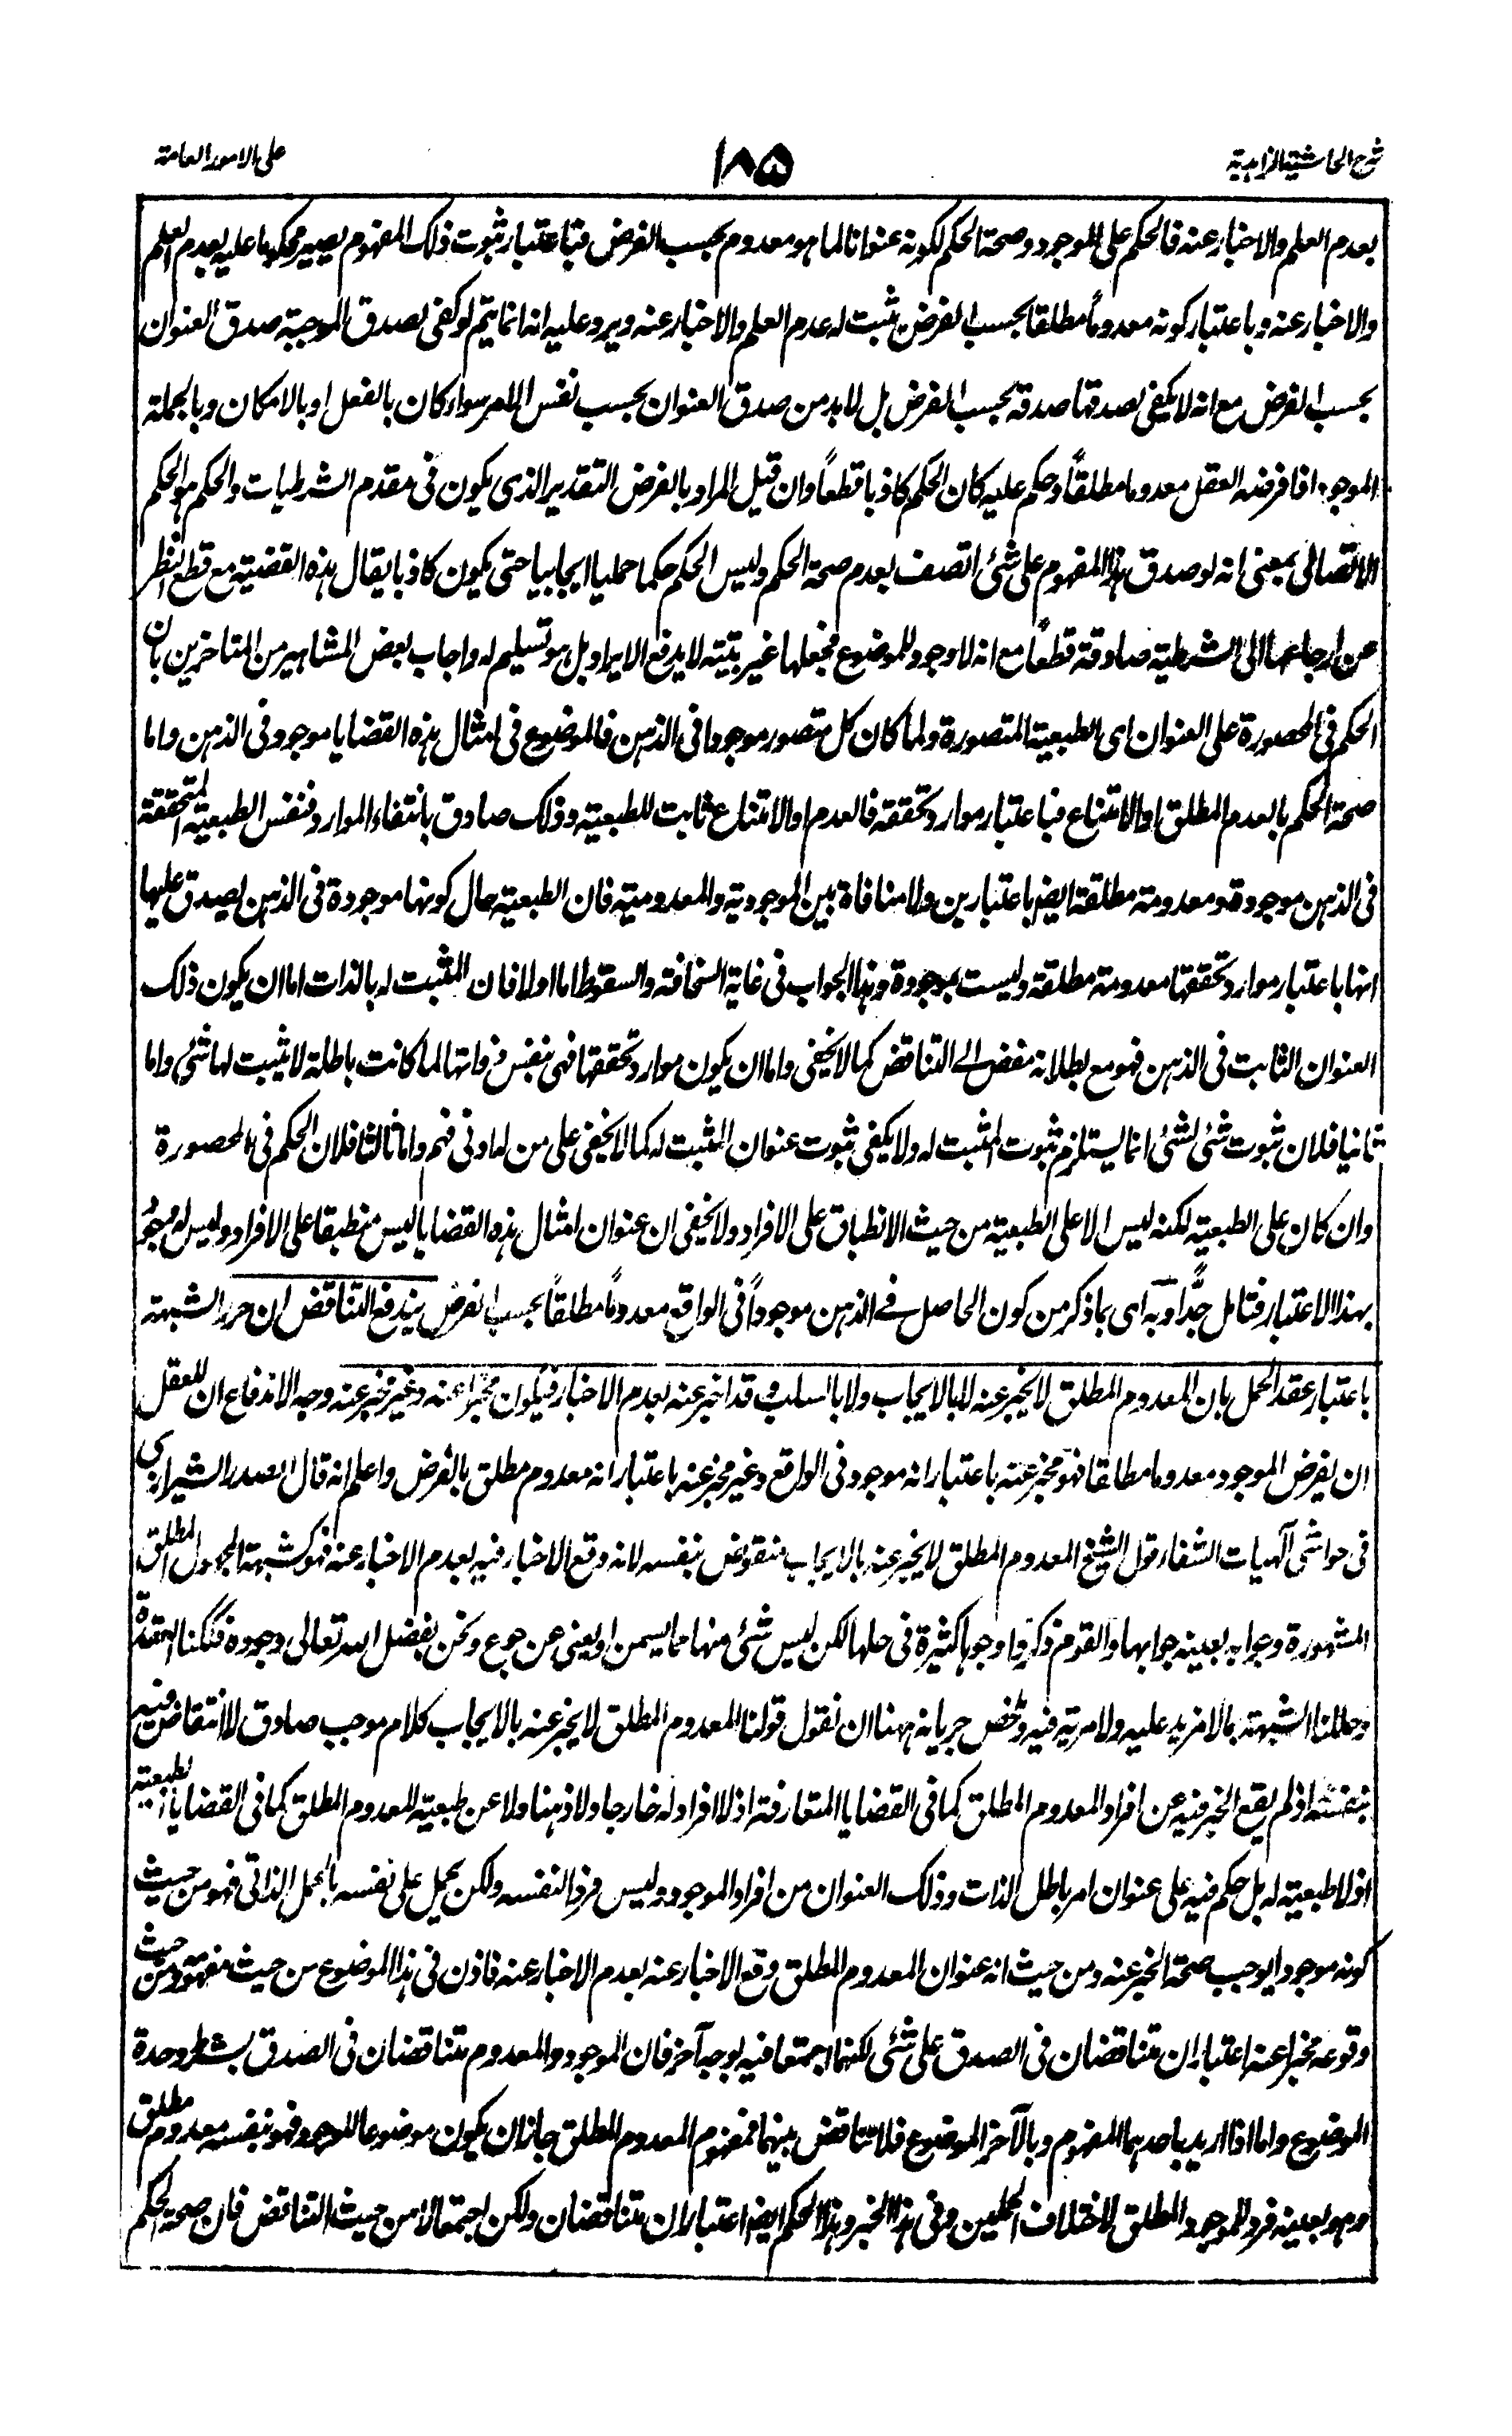 شرح الحاشية الزاهدية
١٨٥
على الامور العامة
بعدم العلم والاخبار عنه فالحكم على الموجود وصحة الحكم لكونه عنوانا لما هو معدوم بحسب الفرض فباعتبار ثبوت ذلك المفهوم يصير محكوما عليه بعدم العلم
والاخبار عنه وباعتبار كونه معدوماً مطلقا بحسب الفرض ثبت له عدم العلم والاخبار عنه ويرد عليه انه انما يتم لو كفى لصدق الموجبة صدق العنوان
بحسب الفرض مع انه لا يكفى لصدقها صدقه بحسب الفرض بل لا بد من صدق العنوان بحسب نفس الامر سواء كان بالفعل او بالامكان وبالجملة
الموجود اذا فرضه العقل معدوما مطلقاً وحكم عليه كان الحكم كاذبا قطعاً وان قيل المراد بالفرض التقدير الذى يكون فى مقدم الشرطيات والحكم هو الحكم
الاتصالى بمعنى انه لو صدق هذا المفهوم على شئ اتصف بعدم صحة الحكم وليس الحكم حكما حمليا ايجابيا حتى يكون كاذبا يقال هذه القضية مع قطع النظر
عن ارجاعها الى الشرطية صادقة قطعاً مع انه لا وجود للموضوع فجعلها غير بتية لا يدفع الايراد بل هو تسليم له واجاب بعض المشاهير من المتاخرين بان
الحكم فى المحصورة على العنوان اى الطبيعة المتصورة ولما كان كل متصور موجودا فى الذهن فالموضوع فى امثال هذه القضايا موجود فى الذهن واما
صحة الحكم بالعدم المطلق او الامتناع فباعتبار موارد تحققه فالعدم او الامتناع ثابت للطبيعة وذلك صادق بانتفاء الموارد فنفس الطبيعة المتحققة
فى الذهن موجودة ومعدومة مطلقة ايضا باعتبارين ولا منافاة بين الموجودية والمعدومية فان الطبيعة حال كونها موجودة فى الذهن يصدق عليها
انها باعتبار موارد تحققها معدومة مطلقة وليست بموجودة وهذا الجواب فى غاية السخافة والسقوط اما اولا فان المثبت له بالذات اما ان يكون ذلك
العنوان الثابت فى الذهن فهو مع بطلانه مفض الى التناقض كما لا يخفى واما ان يكون موارد تحققها فهى بنفس ذواتها لما كانت باطلة لا يثبت لها شئ واما
ثانيا فلان ثبوت شئ لشئ انما يستلزم ثبوت المثبت له ولا يكفى ثبوت عنوان المثبت له كما لا يخفى على من له ادنى فهم واما ثالثا فلان الحكم فى المحصورة
وان كان على الطبيعة لكنه ليس الا على الطبيعة من حيث الانطباق على الافراد ولا يخفى ان عنوان امثال هذه القضايا ليس منطبقا على الافراد وليس له وجود
بهذا الاعتبار فتامل جدّاً وبه اى بما ذكر من كون الحاصل فى الذهن موجوداً فى الواقع معدوماً مطلقاً بحسب الفرض يندفع التناقض ان حرر الشبهة
باعتبار عقد الحمل بان المعدوم المطلق لا يخبر عنه لا بالايجاب ولا بالسلب وقد اخبر عنه بعدم الاخبار فيكون مخبرا عنه وغير مخبر عنه وجه الاندفاع ان للعقل
ان يفرض الموجود معدوما مطلقا فهو مخبر عنه باعتبار انه موجود فى الواقع وغير مخبر عنه باعتبار انه معدوم مطلق بالفرض واعلم انه قال الصدر الشيرازى
فى حواشى آلهيات الشفاء قول الشيخ المعدوم المطلق لا يخبر عنه بالايجاب منقوض بنفسه لانه وقع الاخبار فيه بعدم الاخبار عنه فهو كشبهة المجهول المطلق
المشهورة وجوابه بعينه جوابها والقوم ذكروا وجوها كثيرة فى حلها لكن ليس شئ منها مما يسمن او يغنى عن جوع ونحن بفضل الله تعالى وجوده فككنا العقدة
وحللنا الشبهة بما لا مزيد عليه ولا مرية فيه وملخص جريانه ههنا ان نقول قولنا المعدوم المطلق لا يخبر عنه بالايجاب كلام موجب صادق لا انتقاض فيه
بنفسه اذ لم يقع الخبر فيه عن افراد المعدوم المطلق كما فى القضايا المتعارفة اذ لا افراد له خارجا ولا ذهنا ولا عن طبيعة المعدوم المطلق كما فى القضايا الطبيعية
اذ لا طبيعة له بل حكم فيه على عنوان امر باطل الذات وذلك العنوان من افراد الموجود وليس فردا لنفسه ولكن يحمل على نفسه بالحمل الذاتى فهو من حيث
كونه موجودا يوجب صحة الخبر عنه ومن حيث انه عنوان المعدوم المطلق وقع الاخبار عنه بعدم الاخبار عنه فاذن فى هذا الموضوع من حيث مفهومه ومن حيث
وقوعه مخبرا عنه اعتباران متناقضان فى الصدق على شئ لكنهما اجتمعا فيه بوجه آخر فان الموجود والمعدوم متناقضان فى الصدق بشرط وحدة
الموضوع واما اذا اريد باحدهما المفهوم وبالآخر الموضوع فلا تناقض بينهما فمفهوم المعدوم المطلق جاز ان يكون موضوعا للوجود فهو بنفسه معدوم مطلق
وهو بعينه فرد للموجود المطلق لاختلاف الحملين وفى هذا الخبر وهذا الحكم ايضا اعتباران متناقضان ولكن اجتمعا لا من حيث التناقض فان صحة الحكم